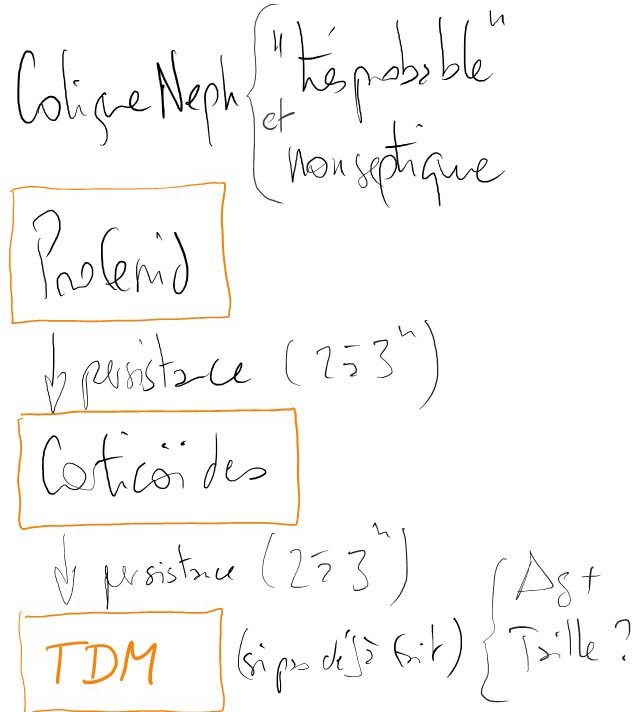 Colique Neph { "très probable"
et
non septique
Profenid
↓ persistance (2 à 3 h)
Corticoïdes
↓ persistance (2 à 3 h)
TDM (si pas déjà fait) { Δg +
Taille ?